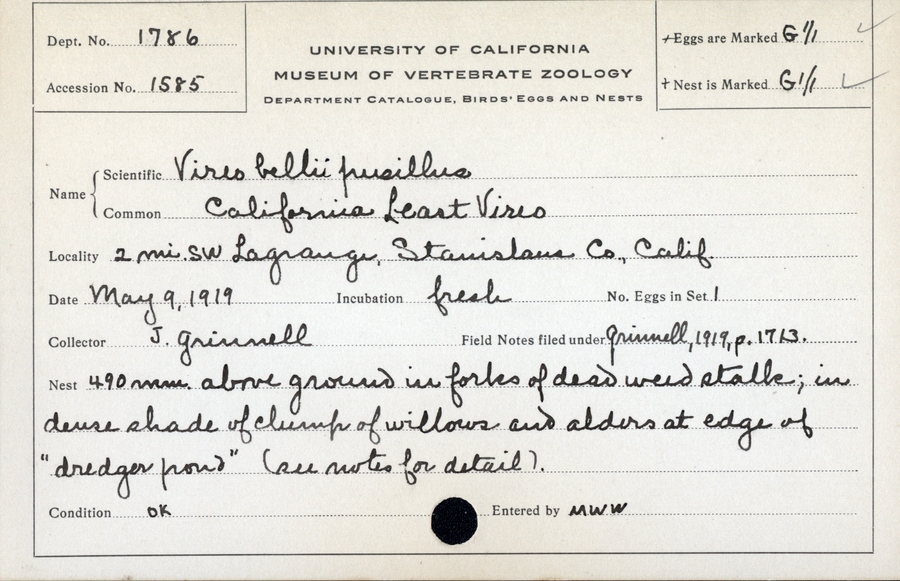 Dept. No. 1786
Accession No. 1585
UNIVERSITY OF CALIFORNIA
MUSEUM OF VERTEBRATE ZOOLOGY
DEPARTMENT CATALOGUE, BIRDS' EGGS AND NESTS
+Eggs are Marked G 1/1 ✓
+ Nest is Marked G 1/1 ✓
Name { Scientific Vireo bellii pusillus
Common California Least Vireo
Locality 2 mi. SW Lagrange, Stanislaus Co., Calif.
Date May 9, 1919 Incubation fresh No. Eggs in Set 1
Collector J. Grinnell Field Notes filed under Grinnell, 1919, p. 1713.
Nest 490 mm. above ground in forks of dead weed stalk; in
dense shade of clump of willows and alders at edge of
"dredger pond" (see notes for detail).
Condition OK Entered by MWW